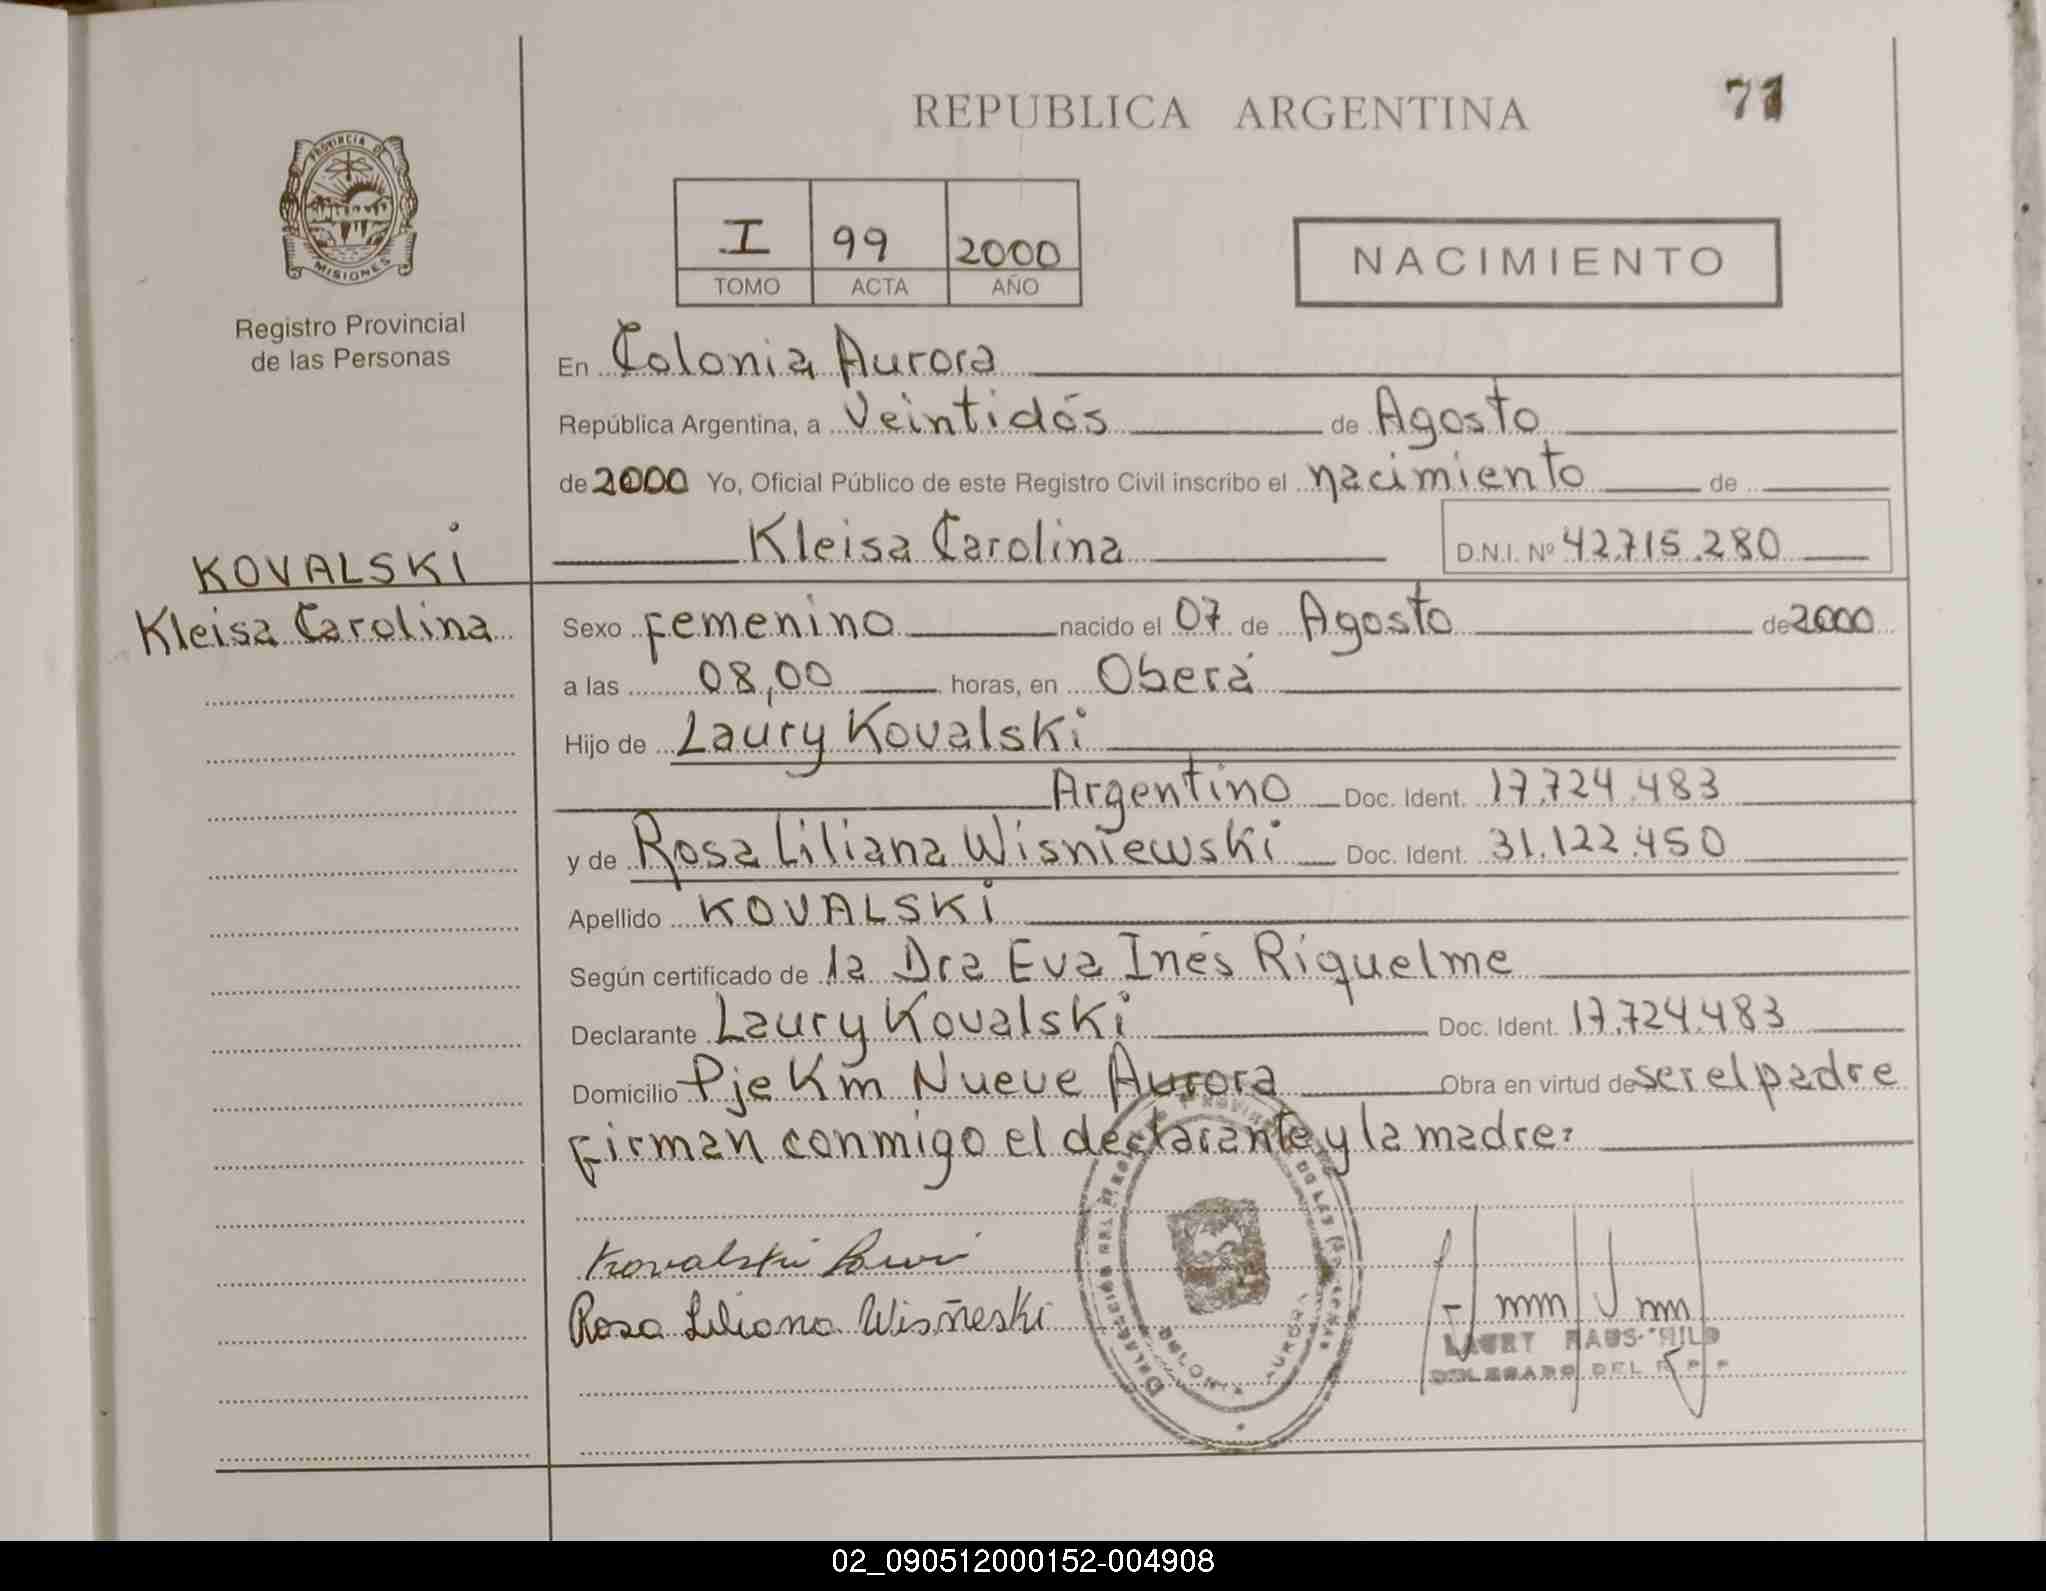 REPUBLICA ARGENTINA
71
PROVINCIA DE
MISIONES
Registro Provincial
de las Personas
I 99 2000
TOMO ACTA AÑO
NACIMIENTO
En Colonia Aurora
República Argentina, a Veintidós de Agosto
de 2000 Yo, Oficial Público de este Registro Civil inscribo el nacimiento de
Kleisa Carolina D.N.I. Nº 42.715.280
KOVALSKi
Kleisa Carolina
Sexo femenino nacido el 07 de Agosto de 2000
a las 08,00 horas, en Oberá
Hijo de Laury Kovalski
Argentino Doc. Ident. 17.724.483
y de Rosa Liliana Wisniewski Doc. Ident. 31.122.450
Apellido KOVALSKi
Según certificado de la Dra Eva Inés Riquelme
Declarante Laury Kovalski Doc. Ident. 17.724.483
Domicilio Pje Km Nueve Aurora Obra en virtud de ser el padre
firman conmigo el declarante y la madre:
Kovalski
Rosa Liliana Wisñeski
DELEGACION DEL REGISTRO PROVINCIAL DE LAS PERSONAS
COLONIA AURORA
LAURY HAUSCHILD
DELEGADO DEL R. P. P.
02_090512000152-004908